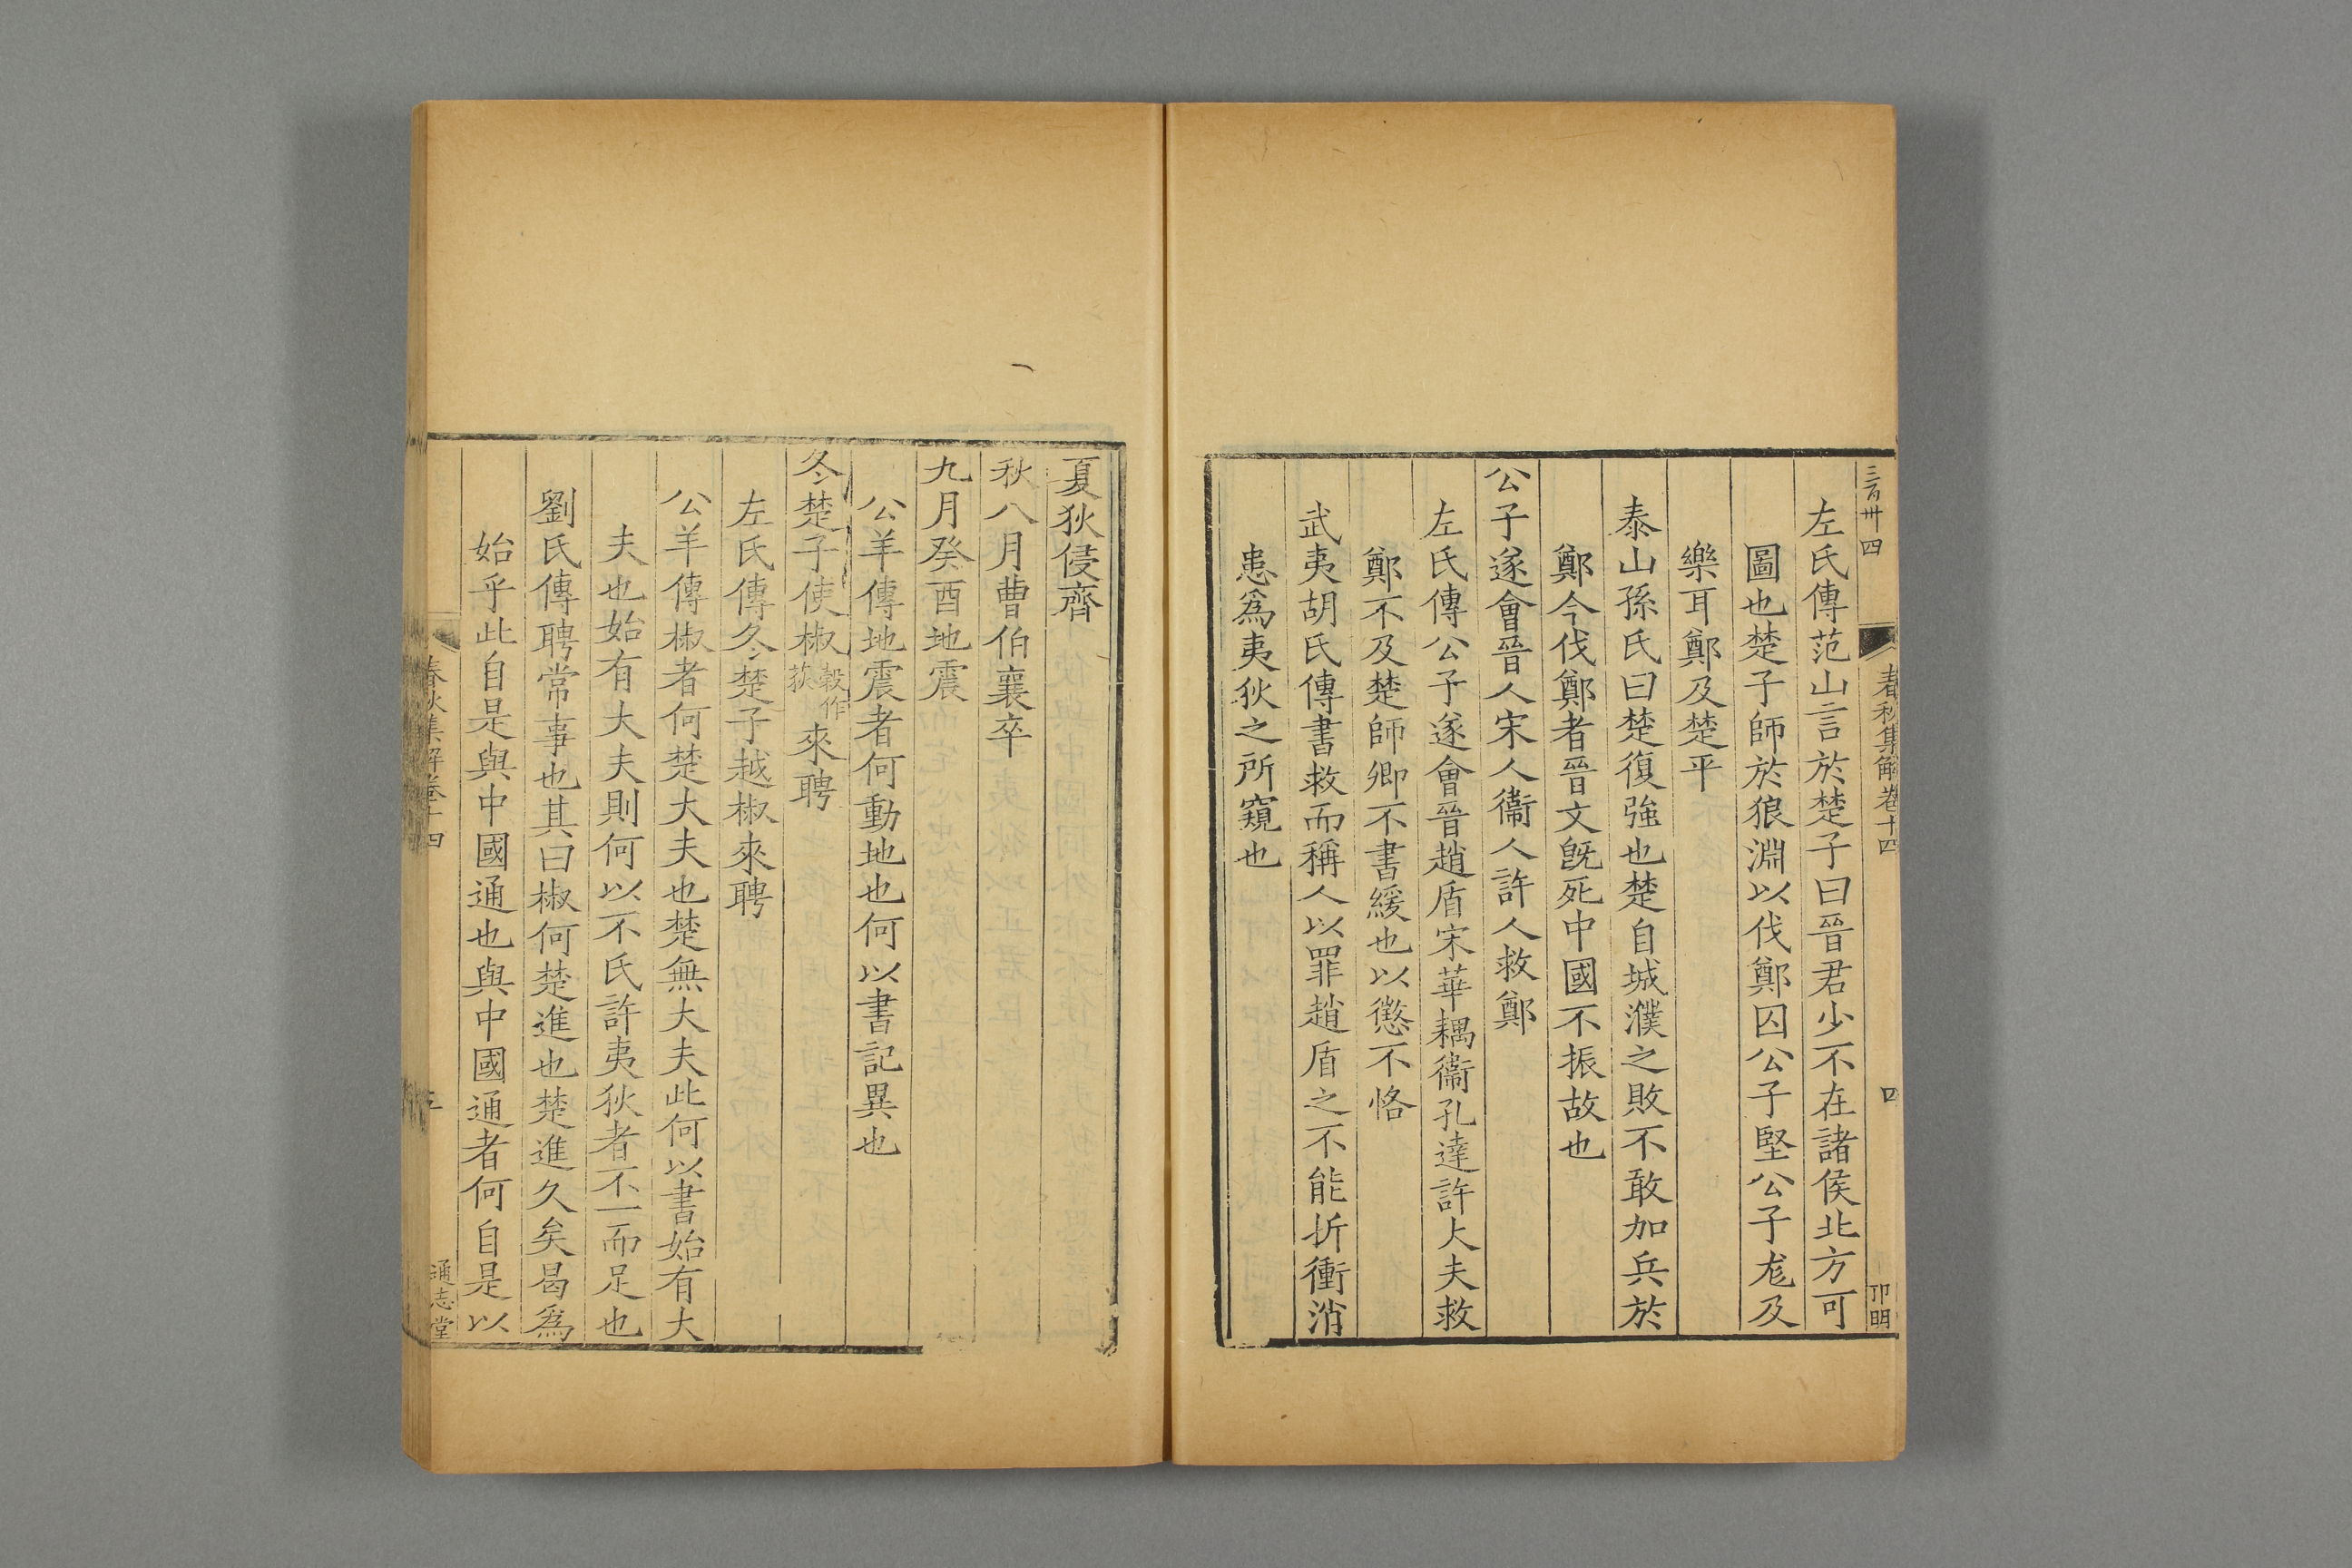 三百卌四
春秋集解卷十四
四
卭明
左氏傳范山言於楚子曰晉君少不在諸侯北方可
圖也楚子師於狼淵以伐鄭囚公子堅公子尨及
樂耳鄭及楚平
泰山孫氏曰楚復強也楚自城濮之敗不敢加兵於
鄭今伐鄭者晉文旣死中國不振故也
公子遂會晉人宋人衞人許人救鄭
左氏傳公子遂會晉趙盾宋華耦衞孔達許大夫救
鄭不及楚師卿不書緩也以懲不恪
武夷胡氏傳書救而稱人以罪趙盾之不能折衝消
患爲夷狄之所窺也
夏狄侵齊
秋八月曹伯襄卒
九月癸酉地震
公羊傳地震者何動地也何以書記異也
冬楚子使椒穀作萩來聘
左氏傳冬楚子越椒來聘
公羊傳椒者何楚大夫也楚無大夫此何以書始有大
夫也始有大夫則何以不氏許夷狄者不一而足也
劉氏傳聘常事也其曰椒何楚進也楚進久矣曷爲
始乎此自是與中國通也與中國通者何自是以
春秋集解卷十四
五
通志堂